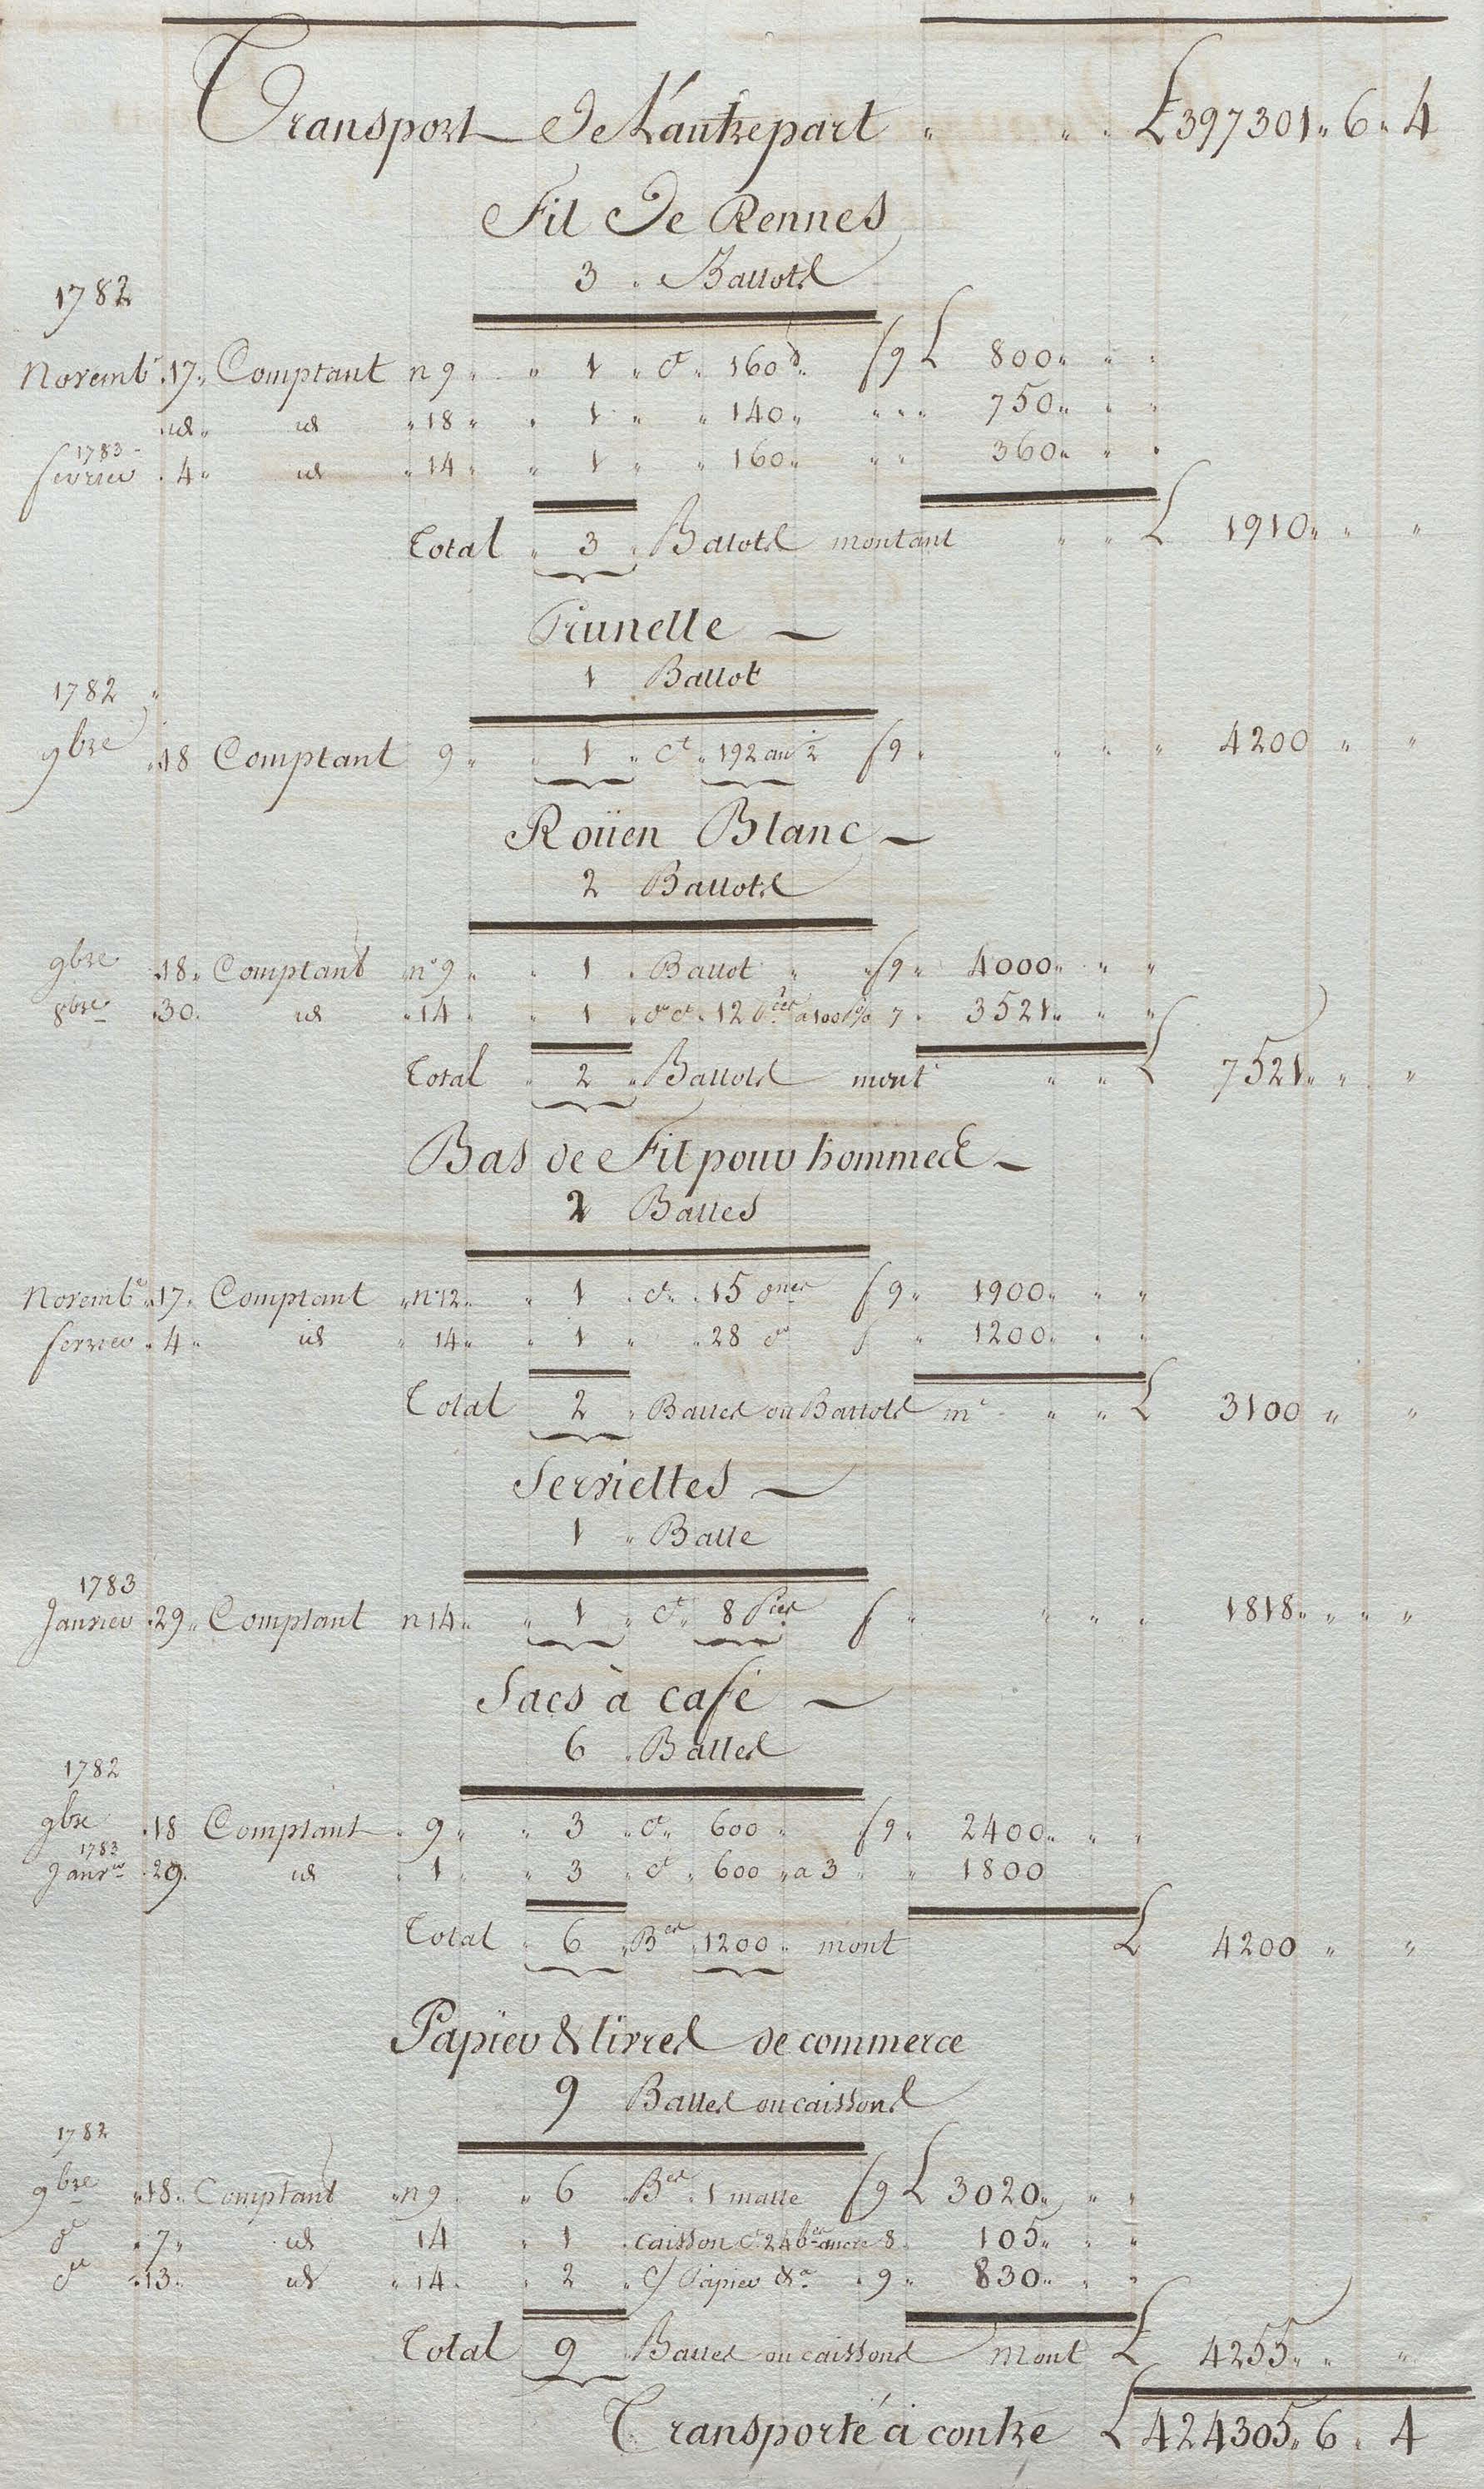 Transport De L'autre part " " " £ 397301 " 6 " 4
Fil De Rennes
3 " Ballots
1782
Novemb.e 17 " Comptant n 9 " " 1 " c.t " 160 " f 9 £ 800 " " "
id " id " 18 " " 1 " " 140 " " " " 750 " " "
1783
fevrier 4 " id " 14 " " 1 " " 160 " " " 360 " " "
Total " 3 " Balots montant " " £ 1910 " " "
Prunelle
1 Ballot
1782 "
9bre 18 Comptant 9 " " 1 " c.t " 192 au 2 f 9 " " " " 4200 " "
Roüen Blanc
2 Ballots
9bre 18 " Comptant n° 9 " " 1 " Ballot " " f 9 " 4000 " " "
8bre 30 " id " 14 " " 1 " d° c.t " 12 P.ces a 100 p% 7 " 3521 " " "
Total " 2 " Ballots mont " " £ 7521 " " "
Bas de Fil pour hommes
2 Balles
Novemb.e 17 " Comptant " n° 12 " " 1 " c.t " 15 d.nes f 9 " 1900 " " "
fevrier " 4 " id " 14 " " 1 " " 28 d° f " 1200 " " "
Total 2 " Balles ou Ballots m.t " " £ 3100 " "
Serviettes
1 " Balle
1783
Janvier 29 " Comptant n 14 " " 1 " c.t " 8 P.ces f " " " " " 1818 " " " "
Sacs à café
6 " Balles
1782
9bre 18 Comptant " 9 " " 3 " c.t " 600 " f 9 " 2400 " " "
1783
Janv.er 29 " id " 1 " " 3 " c.t " 600 " a 3 " " 1800
Total " 6 " B.es " 1200 " mont £ 4200 " "
Papier & livres de commerce
9 Balles ou caissons
1782
9bre " 18 " Comptant " n 9 " " 6 " B.es " 1 malle f 9 £ 3020 " " "
d° " 7 " id 14 " 1 " caisson c.t 24 b.es ancre 8 " 105 " " "
d° " 13 " id " 14 " " 2 " c/ Papier &a " 9 " 830 " " "
Total 9 " Balles ou caissons mont £ 4255 " " "
Transporté ci contre £ 424305 " 6 " 4